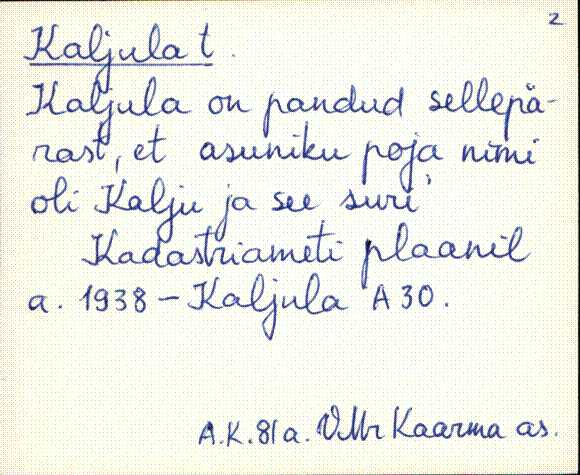 2
Kaljula t.
Kaljula on pandud sellepä-
rast, et asuniku poja nimi
oli Kalju ja see suri
Kadastriameti plaanil
a. 1938 – Kaljula A 30.
A.K. 81a. VMr Kaarma as.